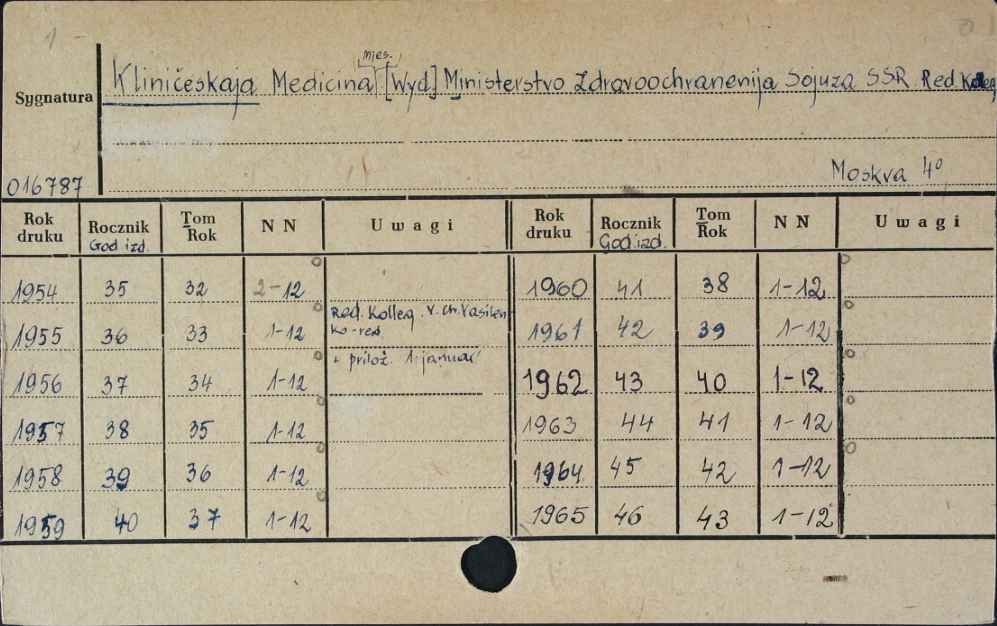 mies.
Kliničeskaja Medicina [Wyd] Ministerstvo Zdravoochranenija Sojuza SSR Red. Kolleg
Sygnatura
016787 Moskva 4°
Rok druku Rocznik God izd. Tom Rok NN Uwagi Rok druku Rocznik God izd. Tom Rok NN Uwagi
1954 35 32 2-12 1960 41 38 1-12
1955 36 33 1-12 Red. Kolleg. V. Ch. Vasilen 1961 42 39 1-12
ko-red.
+ prilož. 1-januar'
1956 37 34 1-12 1962 43 40 1-12
1957 38 35 1-12 1963 44 41 1-12
1958 39 36 1-12 1964 45 42 1-12
1959 40 37 1-12 1965 46 43 1-12